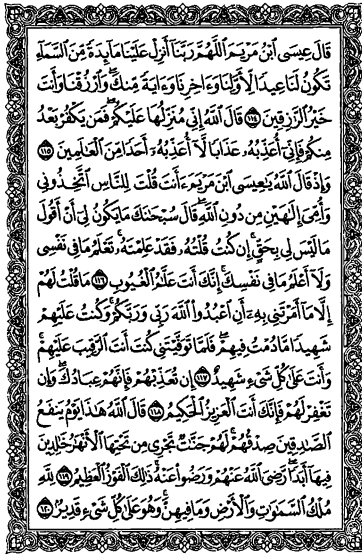 قَالَ عِيسَى ٱبْنُ مَرْيَمَ ٱللَّهُمَّ رَبَّنَآ أَنزِلْ عَلَيْنَا مَآئِدَةً مِّنَ ٱلسَّمَآءِ
تَكُونُ لَنَا عِيدًا لِّأَوَّلِنَا وَءَاخِرِنَا وَءَايَةً مِّنكَ ۖ وَٱرْزُقْنَا وَأَنتَ
خَيْرُ ٱلرَّٰزِقِينَ ﴿١١٤﴾ قَالَ ٱللَّهُ إِنِّى مُنَزِّلُهَا عَلَيْكُمْ ۖ فَمَن يَكْفُرْ بَعْدُ
مِنكُمْ فَإِنِّىٓ أُعَذِّبُهُۥ عَذَابًا لَّآ أُعَذِّبُهُۥٓ أَحَدًا مِّنَ ٱلْعَٰلَمِينَ ﴿١١٥﴾
وَإِذْ قَالَ ٱللَّهُ يَٰعِيسَى ٱبْنَ مَرْيَمَ ءَأَنتَ قُلْتَ لِلنَّاسِ ٱتَّخِذُونِى
وَأُمِّىَ إِلَٰهَيْنِ مِن دُونِ ٱللَّهِ ۖ قَالَ سُبْحَٰنَكَ مَا يَكُونُ لِىٓ أَنْ أَقُولَ
مَا لَيْسَ لِى بِحَقٍّ ۚ إِن كُنتُ قُلْتُهُۥ فَقَدْ عَلِمْتَهُۥ ۚ تَعْلَمُ مَا فِى نَفْسِى
وَلَآ أَعْلَمُ مَا فِى نَفْسِكَ ۚ إِنَّكَ أَنتَ عَلَّٰمُ ٱلْغُيُوبِ ﴿١١٦﴾ مَا قُلْتُ لَهُمْ
إِلَّا مَآ أَمَرْتَنِى بِهِۦٓ أَنِ ٱعْبُدُوا۟ ٱللَّهَ رَبِّى وَرَبَّكُمْ ۚ وَكُنتُ عَلَيْهِمْ
شَهِيدًا مَّا دُمْتُ فِيهِمْ ۖ فَلَمَّا تَوَفَّيْتَنِى كُنتَ أَنتَ ٱلرَّقِيبَ عَلَيْهِمْ ۚ
وَأَنتَ عَلَىٰ كُلِّ شَىْءٍ شَهِيدٌ ﴿١١٧﴾ إِن تُعَذِّبْهُمْ فَإِنَّهُمْ عِبَادُكَ ۖ وَإِن
تَغْفِرْ لَهُمْ فَإِنَّكَ أَنتَ ٱلْعَزِيزُ ٱلْحَكِيمُ ﴿١١٨﴾ قَالَ ٱللَّهُ هَٰذَا يَوْمُ يَنفَعُ
ٱلصَّٰدِقِينَ صِدْقُهُمْ ۚ لَهُمْ جَنَّٰتٌ تَجْرِى مِن تَحْتِهَا ٱلْأَنْهَٰرُ خَٰلِدِينَ
فِيهَآ أَبَدًا ۚ رَّضِىَ ٱللَّهُ عَنْهُمْ وَرَضُوا۟ عَنْهُ ۚ ذَٰلِكَ ٱلْفَوْزُ ٱلْعَظِيمُ ﴿١١٩﴾ لِلَّهِ
مُلْكُ ٱلسَّمَٰوَٰتِ وَٱلْأَرْضِ وَمَا فِيهِنَّ ۚ وَهُوَ عَلَىٰ كُلِّ شَىْءٍ قَدِيرٌۢ ﴿١٢٠﴾